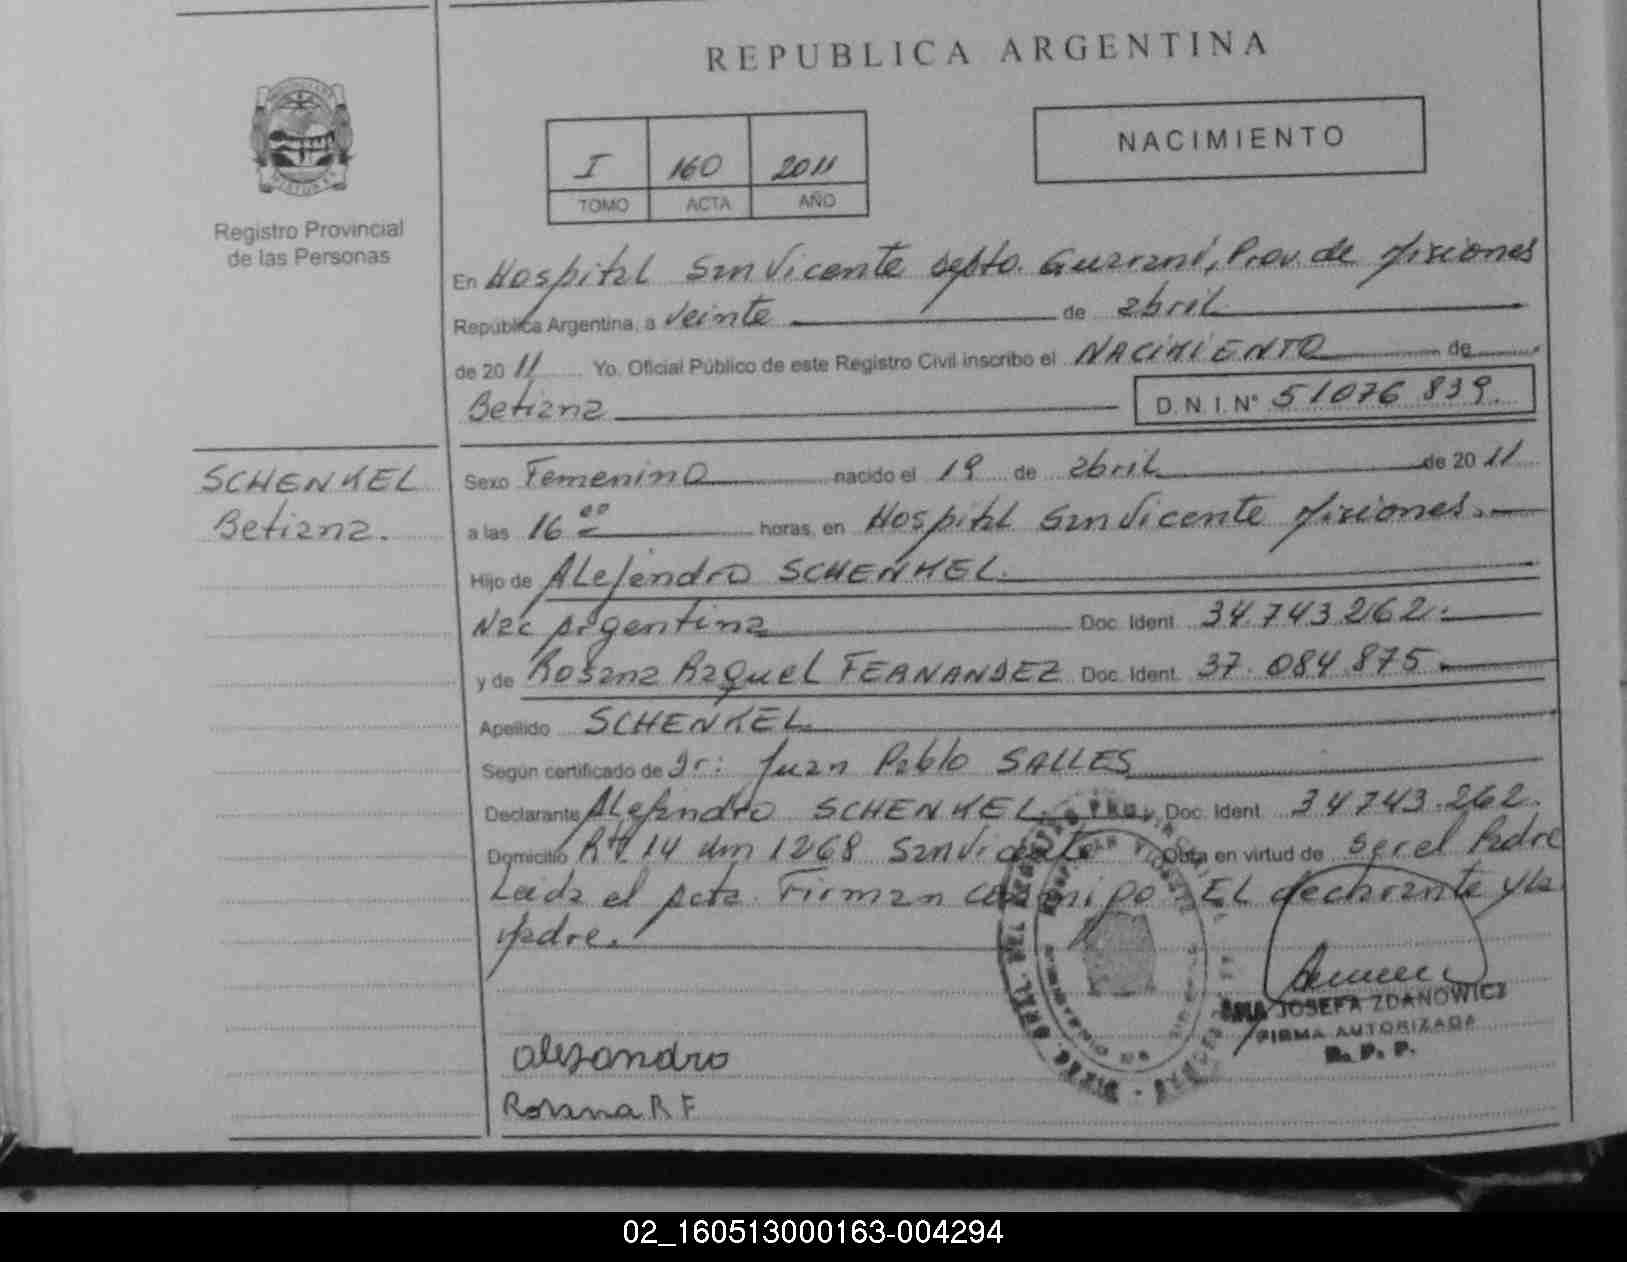 REPUBLICA ARGENTINA
NACIMIENTO
I 160 2011
TOMO ACTA AÑO
Registro Provincial
de las Personas
En Hospital San Vicente depto. Guaraní, Prov. de Misiones
República Argentina, a veinte de abril
de 2011 Yo, Oficial Público de este Registro Civil inscribo el NACIMIENTO de
Betiana D.N.I. Nº 51076 839.
SCHENKEL
Betiana.
Sexo Femenino nacido el 19 de abril de 2011
a las 16 00 horas, en Hospital San Vicente Misiones.
Hijo de Alejandro SCHENKEL.
Nac Argentina Doc. Ident. 34.743.262.
y de Rosana Raquel FERNANDEZ Doc. Ident. 37.084.875.
Apellido SCHENKEL
Según certificado de Dr: Juan Pablo SALLES
Declarante Alejandro SCHENKEL Doc. Ident. 34743.262.
Domicilio Rta 14 km 1268 San Vicente Obra en virtud de ser el Padre
Leida el acta. Firman conmigo EL declarante y la
Madre.
JOSEFA ZDANOWICZ
FIRMA AUTORIZADA
R. P. P.
alejandro
Rosana R F
02_160513000163-004294